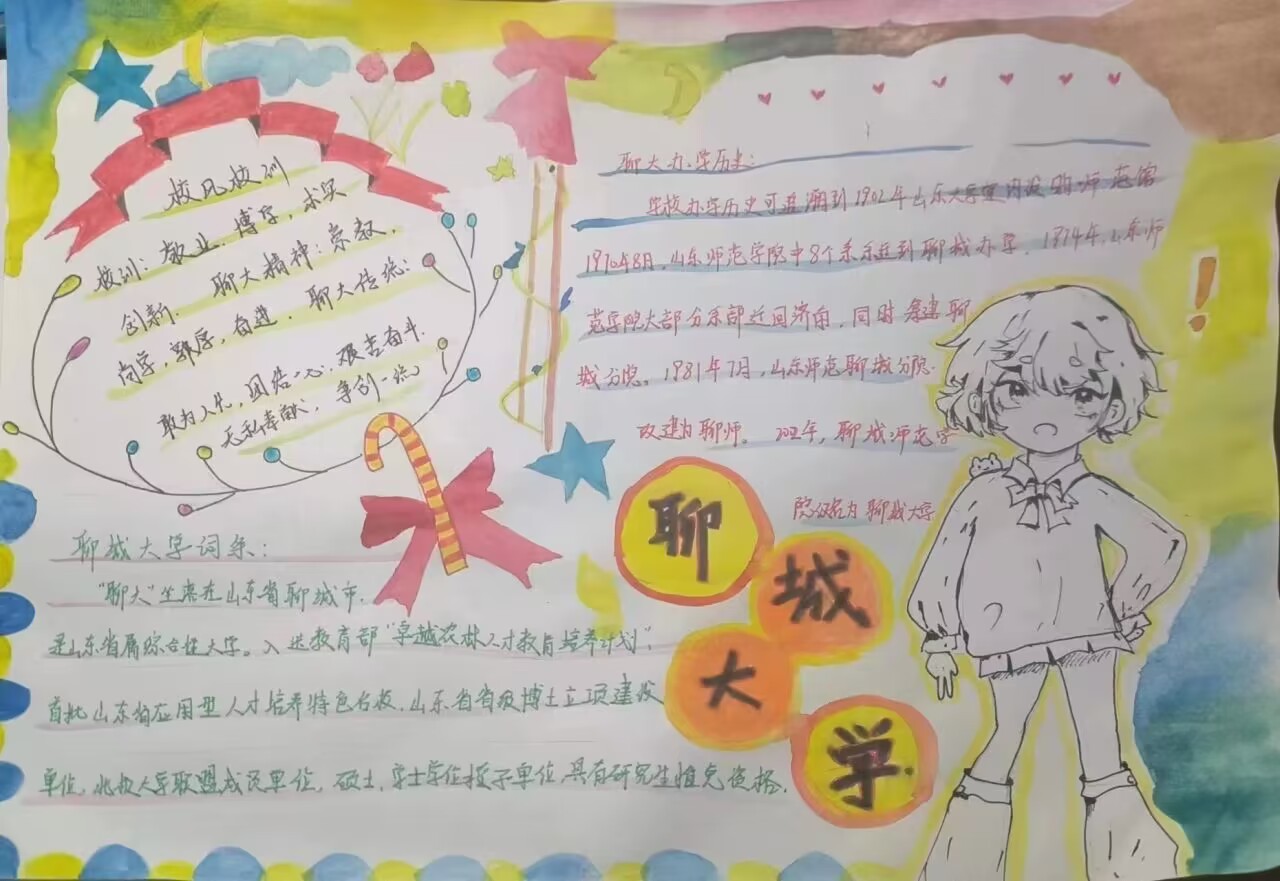 校风校训
校训：敬业，博学，求实
创新. 聊大精神：崇教，
向学，鄂序，奋进. 聊大传统：
敢为人先，团结一心，艰苦奋斗.
无私奉献，争创一流
聊大办学历史：
学校办学历史可追溯到1902年山东大学堂内设的师范馆
1970年8月，山东师范学院中8个系东迁到聊城办学. 1974年，山东师
范学院大部分系部迁回济南，同时筹建聊
城分院。1981年7月，山东师范聊城分院.
改建为聊师。 年，聊城师范学
院改名为聊城大学
聊城大学词条：
“聊大”坐落在山东省聊城市.
是山东省属综合性大学。入选教育部“卓越农林人才教育培养计划”.
首批山东省应用型人才培养特色名校.山东省省级博士立项建设
单位. 大学联盟成员单位，硕士.学士学位授予单位.具有研究生推免资格.
聊
城
大
学